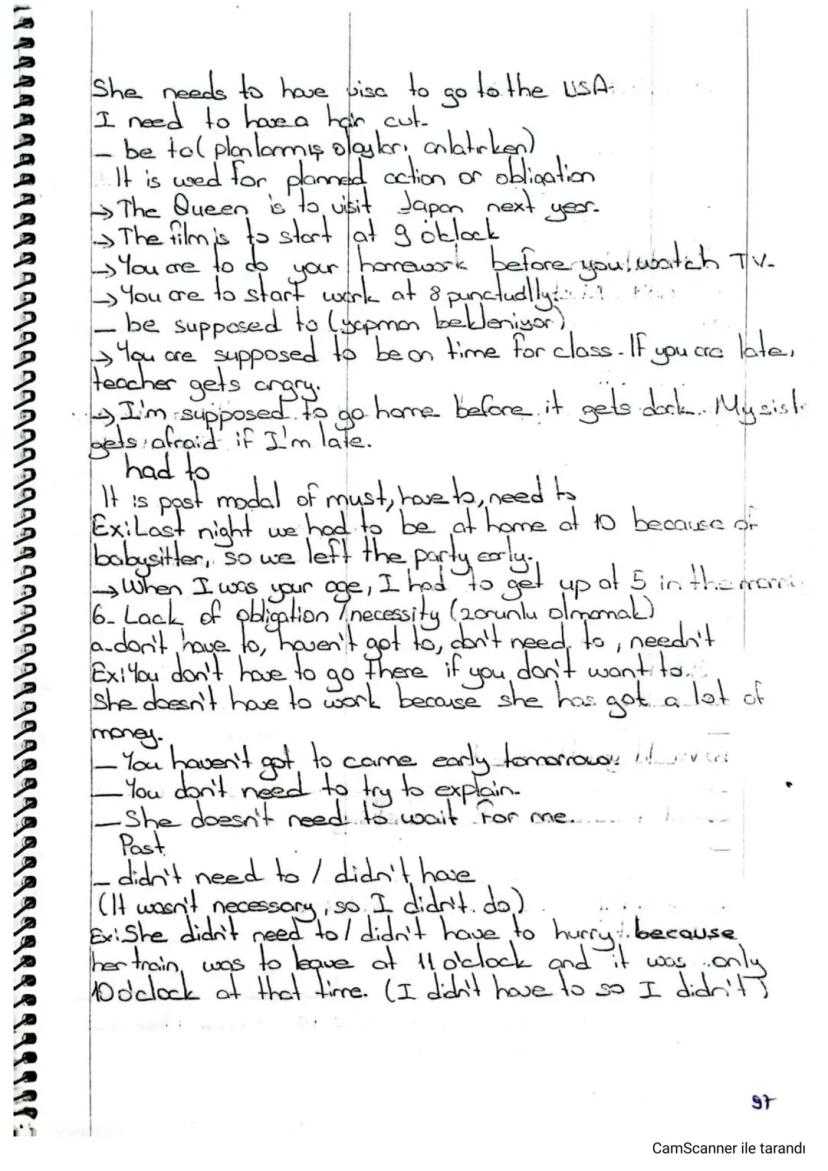 She needs to have visa to go to the USA.
I need to have a hair cut.
- be to ( planlanmış olayları anlatırken)
It is used for planned action or obligation
→ The Queen is to visit Japan next year.
→ The film is to start at 9 o'clock
→ You are to do your homework before you watch TV.
→ You are to start work at 8 punctually.
- be supposed to (yapman bekleniyor)
→ You are supposed to be on time for class. If you are late,
teacher gets angry.
→ I'm supposed to go home before it gets dark. My sist
gets afraid if I'm late.
had to
It is past modal of must, have to, need to
Ex: Last night we had to be at home at 10 because of
babysitter, so we left the party early.
→ When I was your age, I had to get up at 5 in the morni
6- Lack of obligation / necessity (zorunlu olmamak)
a-don't have to, haven't got to, don't need to, needn't
Ex: You don't have to go there if you don't want to.
She doesn't have to work because she has got a lot of
money.
- You haven't got to come early tomorrow.
- You don't need to try to explain.
- She doesn't need to wait for me.
Past
- didn't need to / didn't have
(It wasn't necessary, so I didn't do)
Ex: She didn't need to / didn't have to hurry because
her train was to leave at 11 o'clock and it was only
10 o'clock at that time. (I didn't have to so I didn't)
97
CamScanner ile tarandı